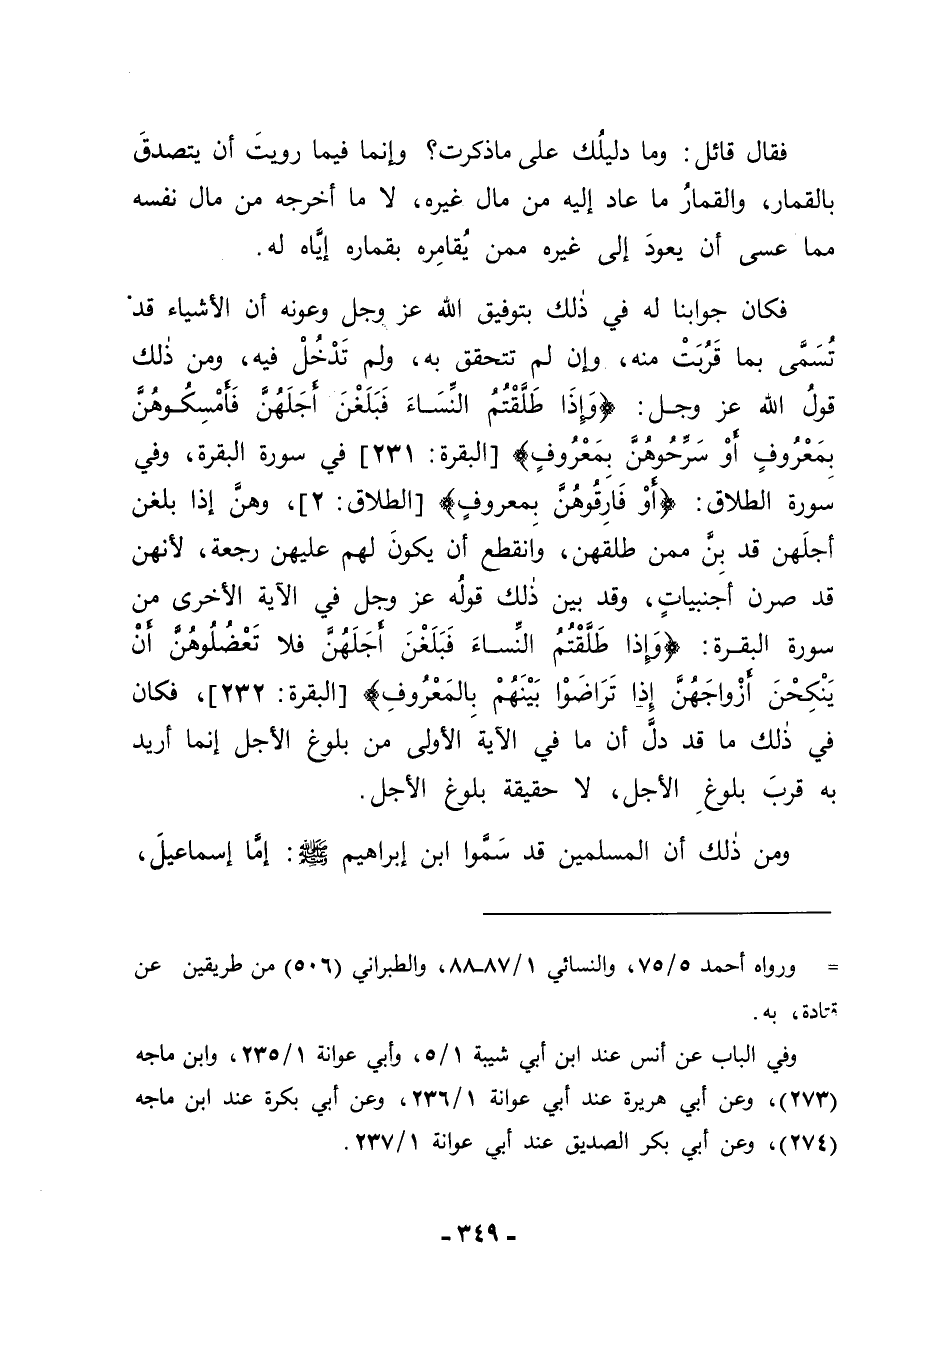 فقال قائل: وما دليلُك على ماذكرت؟ وإنما فيما رويتَ أن يتصدقَ
بالقمار، والقمارُ ما عاد إليه من مال غيره، لا ما أخرجه من مال نفسه
مما عسى أن يعودَ إلى غيره ممن يُقامِره بقماره إيَّاه له.
فكان جوابنا له في ذٰلك بتوفيق الله عز وجل وعونه أن الأشياء قد
تُسَمَّى بما قَرُبَتْ منه، وإن لم تتحقق به، ولم تَدْخُلْ فيه، ومن ذٰلك
قولُ الله عز وجل: ﴿وَإِذَا طَلَّقْتُمُ النِّسَاءَ فَبَلَغْنَ أَجَلَهُنَّ فَأَمْسِكُوهُنَّ
بِمَعْرُوفٍ أَوْ سَرِّحُوهُنَّ بِمَعْرُوفٍ﴾ [البقرة: ٢٣١] في سورة البقرة، وفي
سورة الطلاق: ﴿أَوْ فَارِقُوهُنَّ بِمعروفٍ﴾ [الطلاق: ٢]، وهنَّ إذا بلغن
أجلَهن قد بِنَّ ممن طلقهن، وانقطع أن يكونَ لهم عليهن رجعة، لأنهن
قد صرن أجنبياتٍ، وقد بين ذٰلك قولُه عز وجل في الآية الأخرى من
سورة البقرة: ﴿وَإِذا طَلَّقْتُمُ النِّساءَ فَبَلَغْنَ أَجَلَهُنَّ فلا تَعْضُلُوهُنَّ أَنْ
يَنْكِحْنَ أَزْواجَهُنَّ إِذا تَرَاضَوْا بَيْنَهُمْ بِالمَعْرُوفِ﴾ [البقرة: ٢٣٢]، فكان
في ذٰلك ما قد دلَّ أن ما في الآية الأولى من بلوغ الأجل إنما أريد
به قربَ بلوغِ الأجل، لا حقيقة بلوغ الأجل.
ومن ذٰلك أن المسلمين قد سَمَّوا ابن إبراهيم ﷺ: إمَّا إسماعيلَ،
= ورواه أحمد ٧٥/٥، والنسائي ٨٧/١-٨٨، والطبراني (٥٠٦) من طريقين عن
قتادة، به.
وفي الباب عن أنس عند ابن أبي شيبة ٥/١، وأبي عوانة ٢٣٥/١، وابن ماجه
(٢٧٣)، وعن أبي هريرة عند أبي عوانة ٢٣٦/١، وعن أبي بكرة عند ابن ماجه
(٢٧٤)، وعن أبي بكر الصديق عند أبي عوانة ٢٣٧/١.
- ٣٤٩ -